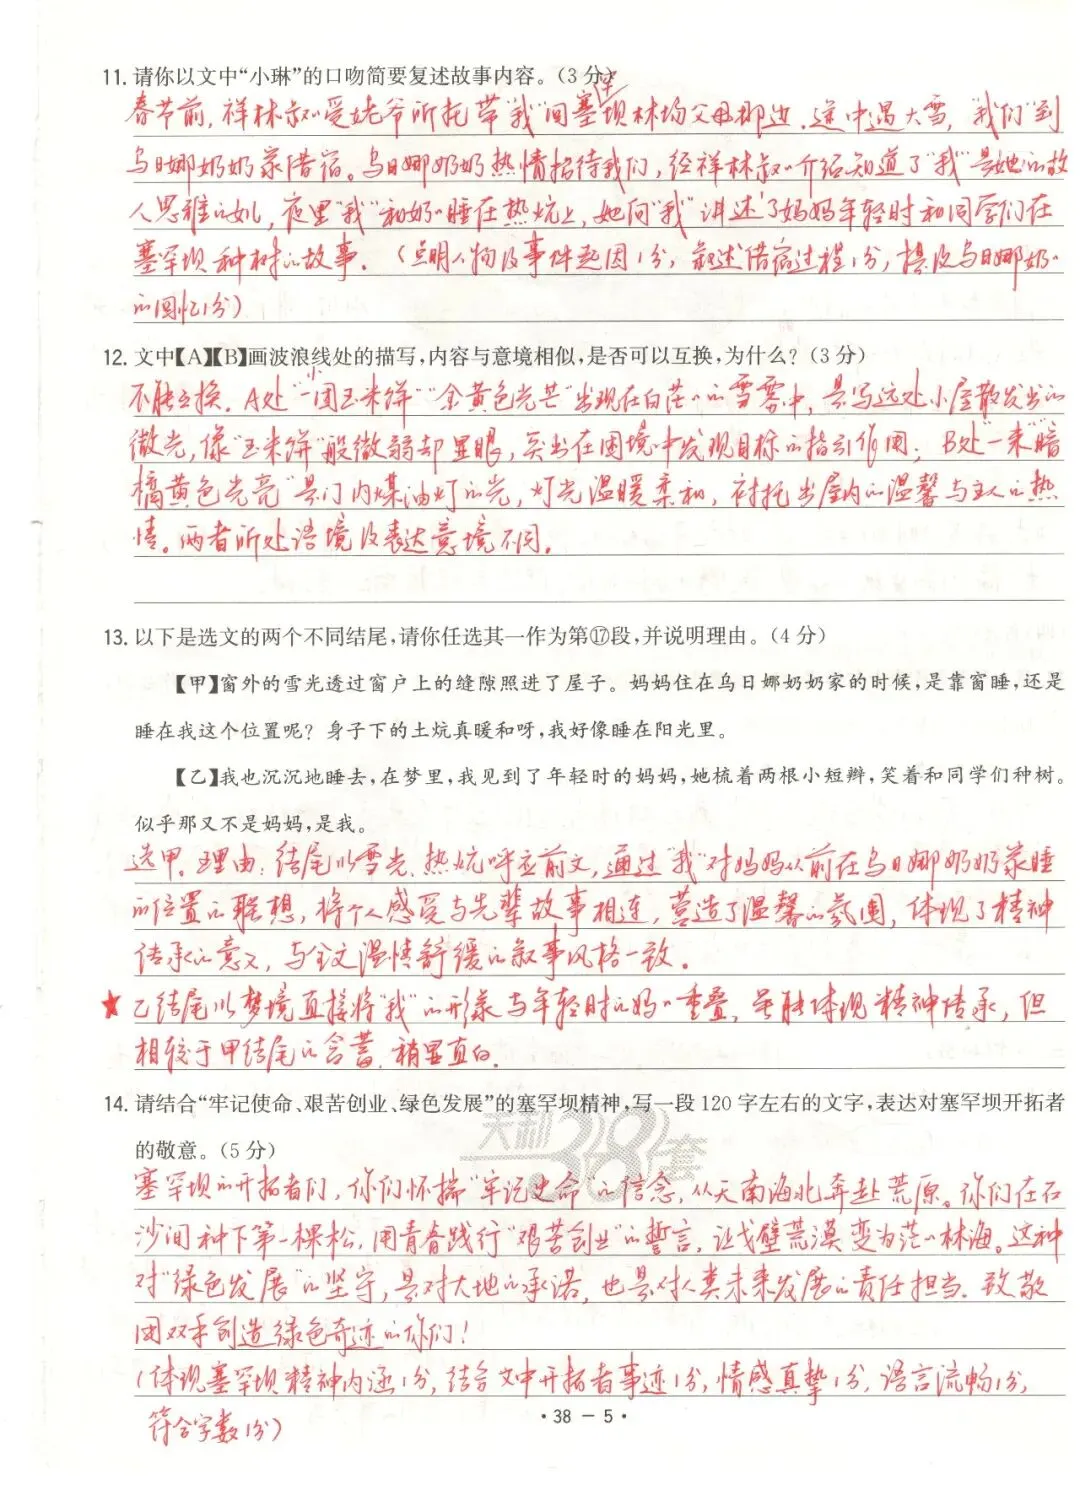 11. 请你以文中“小琳”的口吻简要复述故事内容。(3分)
罕
春节前,祥林叔叔受姥爷所托带“我”回塞坝林场父母那边,途中遇大雪,“我们”到
乌日娜奶奶家借宿。乌日娜奶奶热情招待我们,经祥林叔叔介绍知道了“我”是她的故
人思雅的女儿,夜里“我”和奶奶睡在热炕上,她向“我”讲述了妈妈年轻时和同学们在
塞罕坝种树的故事。(点明人物及事件起因1分,叙述借宿过程1分,提及乌日娜奶奶
的回忆1分)
12. 文中【A】【B】画波浪线处的描写,内容与意境相似,是否可以互换,为什么?(3分)
小
不能互换。A处“一团玉米饼”“金黄色光芒”出现在白茫茫的雪雾中,是写远处小屋散发出的
微光,像“玉米饼”般微弱却显眼,突出在困境中发现目标的指引作用;B处“一束”“暗
橘黄色光亮”是门内煤油灯的光,灯光温暖柔和,衬托出屋内的温馨与主人的热
情。两者所处语境及表达意境不同。
13. 以下是选文的两个不同结尾,请你任选其一作为第⑰段,并说明理由。(4分)
【甲】窗外的雪光透过窗户上的缝隙照进了屋子。妈妈住在乌日娜奶奶家的时候,是靠窗睡,还是
睡在我这个位置呢?身子下的土炕真暖和呀,我好像睡在阳光里。
【乙】我也沉沉地睡去,在梦里,我见到了年轻时的妈妈,她梳着两根小短辫,笑着和同学们种树。
似乎那又不是妈妈,是我。
选甲。理由:结尾以雪光、热炕呼应前文,通过“我”对妈妈从前在乌日娜奶奶家睡
的位置的联想,将个人感受与先辈故事相连,营造了温馨的氛围,体现了精神
传承的意义,与全文温情舒缓的叙事风格一致。
★乙结尾以梦境直接将“我”的形象与年轻时的妈妈重叠,虽能体现精神传承,但
相较于甲结尾的含蓄,稍显直白。
14. 请结合“牢记使命、艰苦创业、绿色发展”的塞罕坝精神,写一段120字左右的文字,表达对塞罕坝开拓者
的敬意。(5分)
天利38套
塞罕坝的开拓者们,你们怀揣“牢记使命”的信念,从天南海北奔赴荒原。你们在石
沙间种下第一棵松,用青春践行“艰苦创业”的誓言,让戈壁荒漠变为茫茫林海。这种
对“绿色发展”的坚守,是对大地的承诺,也是对人类未来发展的责任担当。致敬
用双手创造绿色奇迹的你们!
(体现塞罕坝精神内涵1分,结合文中开拓者事迹1分,情感真挚1分,语言流畅1分,
符合字数1分)
·38-5·